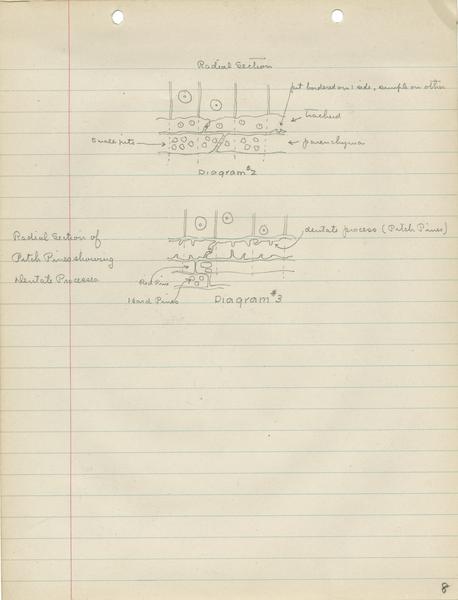 Radial Section
pit bordered on 1 side, simple on other
tracheid
small pits
parenchyma
Diagram #2
dentate process (Pitch Pines)
Radial Section of
Pitch Pines showing
Dentate Processes
Red Pine
Hard Pines
Diagram #3
8